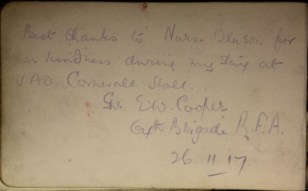 Best thanks to Nurse for
her kindness during my stay at
V.A.D. Cornwall Hall.
Gnr E.W. Cooper
Brigade R.F.A.
26 11 17